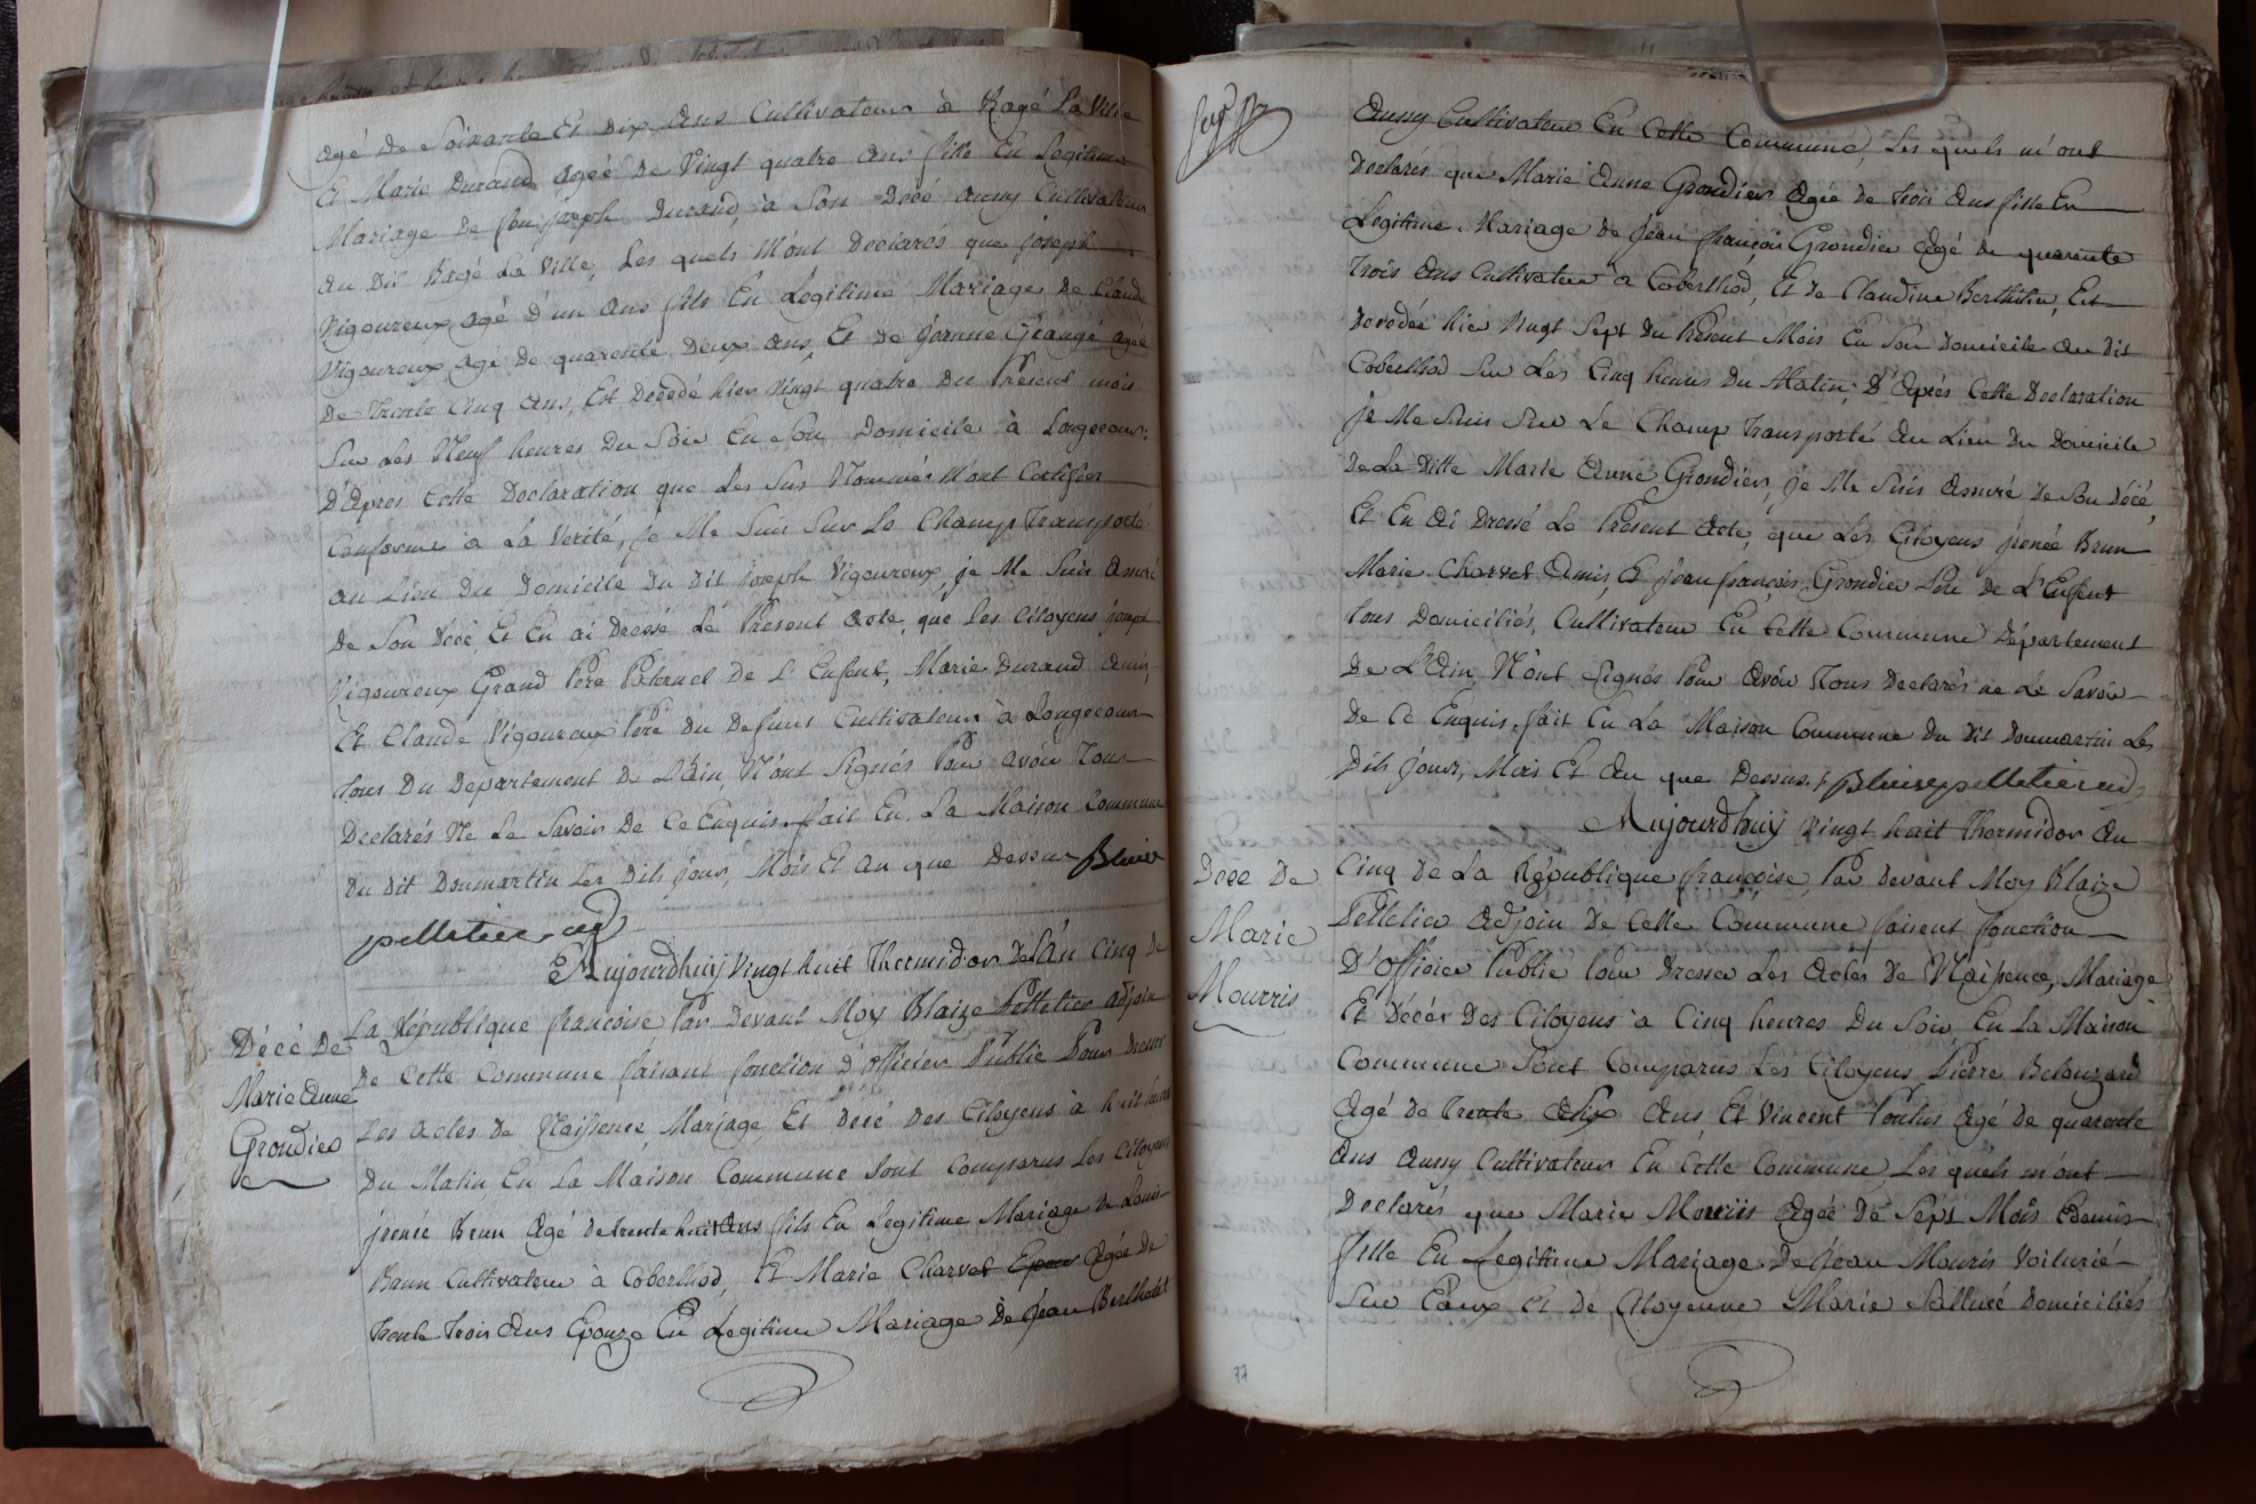 agé de Soixante Et dix Ans Cultivateur à Bagé La Ville
Et Marie Durand agéé De Vingt quatre Ans fille En Legitime
Mariage De feu joseph Durand, à Son Décé aussy Cultivateur
au Dit Bagé La Ville, Les quels M'ont Declarés que joseph
Vigoureux agé d'un Ans fils En Legitime Mariage De Claude
Vigoureux agé De quarente Deux Ans, Et De jeanne Grangé agéé
De Trente Cinq Ans, Est Décédé hier Vingt quatre Du Present mois
Sur Les Neuf heures Du Soir En Son Domicile à Longecour:
D'Apres Cette Declaration que Les Sus Nommés M'ont Certifier
Conforme a La Verité, je Me Suis Sur Le Champ Transporté
au Lieu Du Domicile Du Dit joseph Vigoureux, je Me Suis Assuré
De Son Décé, Et En ai Dressé Le Present Acte, que Les Citoyens joseph
Vigoureux Grand Pere Paternel De L'Enfent, Marie Durand Amis,
Et Claude Vigoureux Pere Du Defunt Cultivateur à Longecour
Tous Du Departement De L'Ain, N'ont Signés Pour avoir Tous
Declarés Ne Le Savoir De Ce Enquis. fait En La Maison Commune
Du Dit Donmartin Les Dits jour, Mois Et An que Dessus Blaise
pelletier adj
Décé De
Marie Anne
Grondier
Aujourdhuij Vingt huit Thermidor De L'An Cinq De
La République françoise Par Devant Moy Blaize Pelletier adjoin
De Cette Commune faisant fonction d'officier Public Pour Dresser
Les Actes De Naissence, Mariage, Et Décé Des Citoyens à huit heures
Du Matin En La Maison Commune Sont Comparus Les Citoyens
jrenée Brun Agé de trente huit Ans fils En Legitime Mariage De Louis
Brun Cultivateur à Coberthod, Et Marie Charvet Epouz Agée De
Trente Trois Ans Epouze En Légitime Mariage De jean Berthelet
Aussy Cultivateur En Cette Commune, Les quels m'ont
Declarés que Marie Anne Grondier Agéé De trois Ans fille En
Legitime Mariage De jean françois Grondier Agé De quarente
Trois Ans Cultivateur à Coberthod, Et De Claudine Berthilier, Est
Décédéé hier Vingt Sept Du Présent Mois En Son Domicile au Dit
Coberthod Sur Les Cinq heures Du Matin; D'Aprés Cette Declaration
je Me Suis Sur Le Champ Transporté Au Lieu Du Domicile
De La Ditte Marie Anne Grondier, je Me Suis Assuré De Son Décé,
Et En Ai Dressé Le Présent Acte, que Les Citoyens jrenée Brun
Marie Charvet Amis, Et jean françois Grondier Pere De L'Enfent
Tous Domiciliés, Cultivateur En Cette Commune Département
De L'Ain, N'ont Signés Pour Avoir Tous Declarés ne Le Savoir
De Ce Enquis. fait En La Maison Commune Du Dit Donmartin Les
Dits jours, Mois Et An que Dessus. Blaise pelletier adj
Décé De
Marie
Mourris
Aujourdhuij Vingt huit Thermidor An
Cinq De La République françoise, Par Devant Moy Blaize
Pelletier Adjoin De Cette Commune faisent fonction
D'officier Public Pour Dresser Les Actes De Naissence, Mariage
Et Décés Des Citoyens à Cinq heures Du Soir En La Maison
Commune Sont Comparus Les Citoyens Pierre Belouzard
Agé De Trente Ans Et Vincent Pontus Agé De quarente
Ans Aussy Cultivateur En Cette Commune, Les quels m'ont
Declarés que Marie Mourris Agéé De Sept Mois Edemis
fille En Legitime Mariage De jean Mouris Voiturié
Sur Eaux Et De Citoyenne Marie Palluié Domiciliés
77